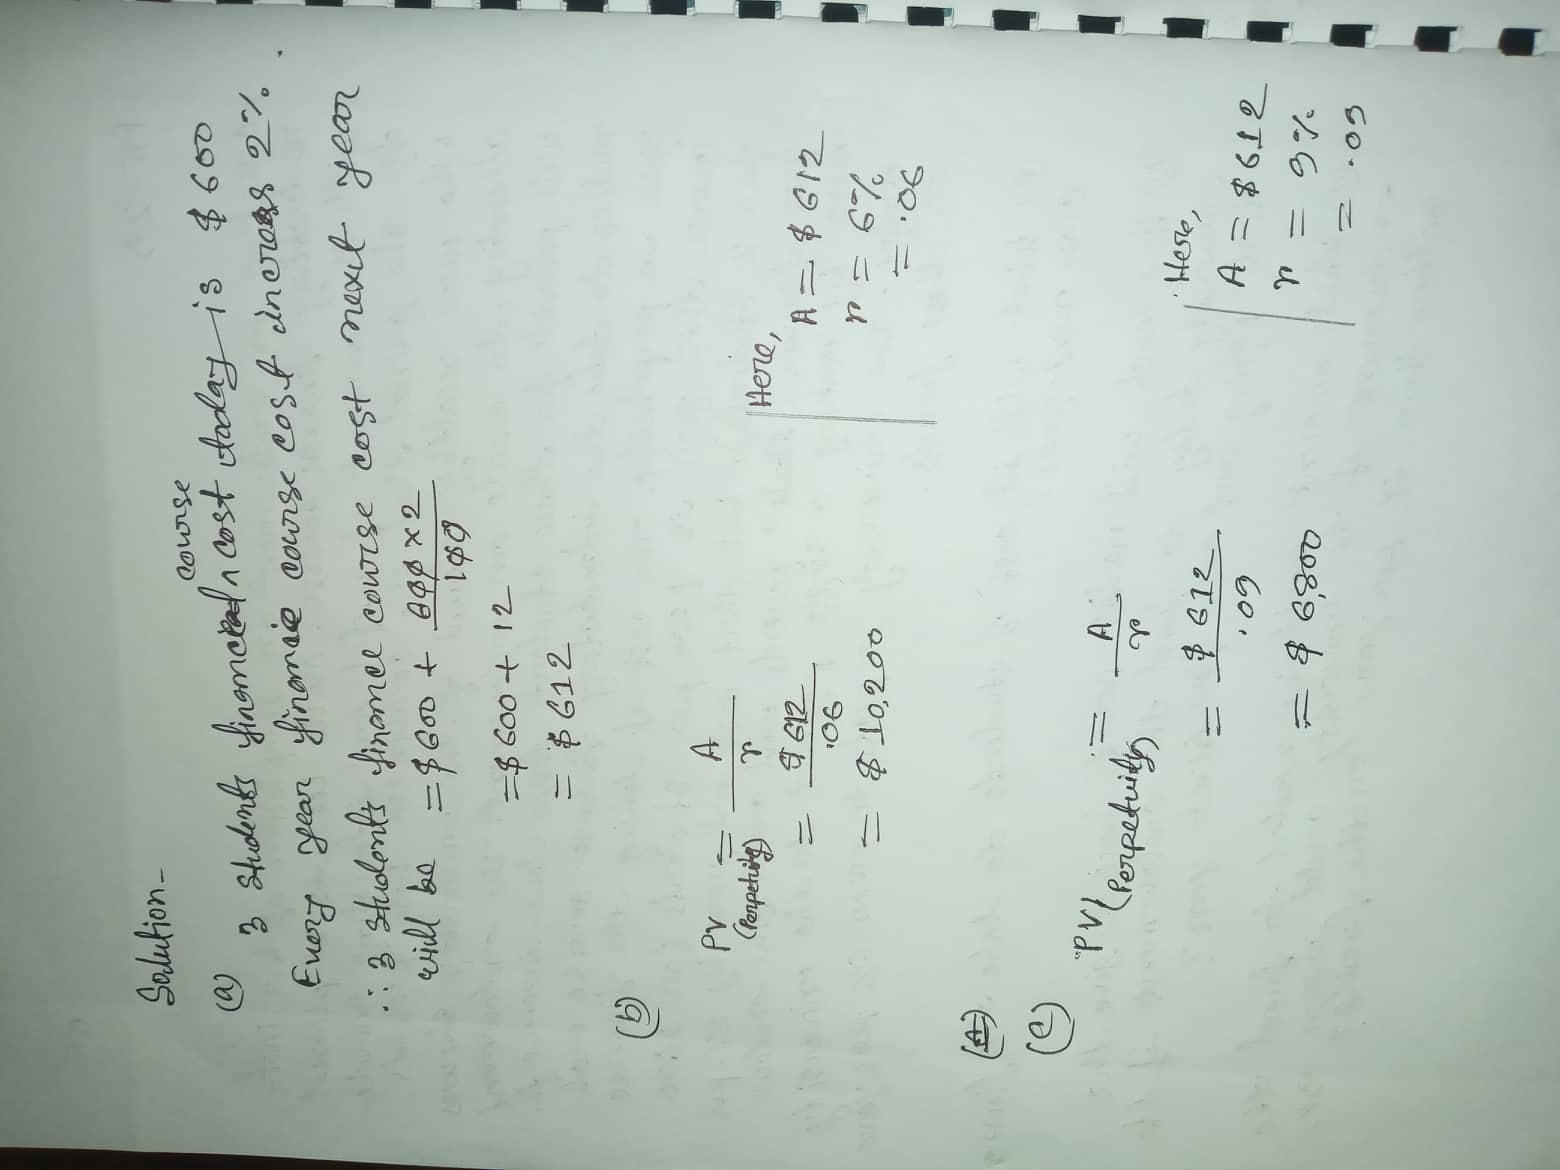 Solution-
(a) 3 students financial course cost today is $ 600
Every year finance course cost increase 2%.
∴ 3 students finance course cost next year
will be = $ 600 + 600 x 2 / 100
= $ 600 + 12
= $ 612
(b)
PV (Perpetuity) = A / r
= $ 612 / .06
= $ 10,200
Here,
A = $ 612
r = 6%
= .06
(A)
(c)
PV (Perpetuity) = A / r
= $ 612 / .09
= $ 6,800
Here,
A = $ 612
r = 9%
= .09